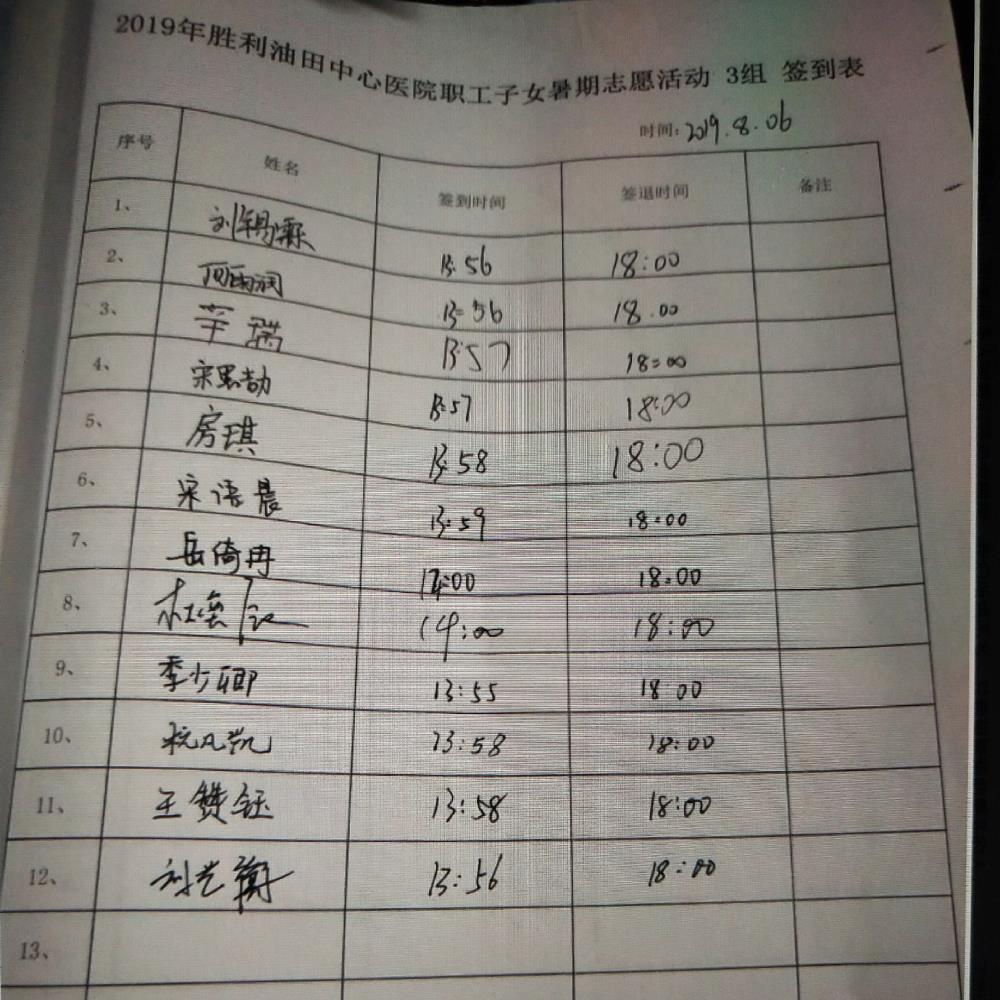 2019年胜利油田中心医院职工子女暑期志愿活动 3组 签到表
时间：2019.8.06
序号 姓名 签到时间 签退时间 备注
1、 刘锡霖 13:56 18:00
2、 13:56 18.00
3、 辛瑞 13:57 18:00
4、 宋思喆 13:57 18:00
5、 房琪 13:58 18:00
6、 宋语晨 13:59 18:00
7、 岳倚冉 14:00 18:00
8、 14:00 18:00
9、 季少卿 13:55 18:00
10、 杭凡凯 13:58 18:00
11、 王赞钰 13:58 18:00
12、 刘艺蘅 13:56 18:00
13、